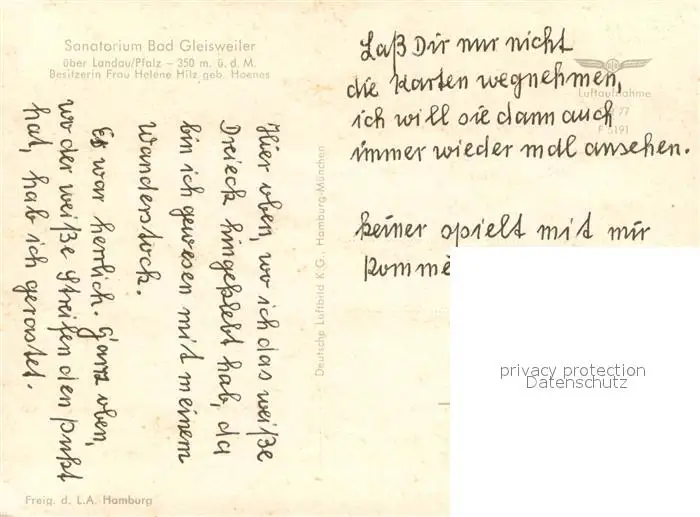 Sanatorium Bad Gleisweiler
über Landau/Pfalz – 350 m. ü. d. M.
Besitzerin Frau Helene Hilz geb. Hoenes
Hier oben, wo ich das weiße
Dreieck hingeklebt hab, da
bin ich gewesen mit meinem
Wanderstock.
Es war herrlich. Ganz oben,
wo der weiße Streifen den Punkt
hat, hab ich gerastet.
Freig. d. L.A. Hamburg
Deutsche Luftbild K.G., Hamburg-München
Laß Dir nur nicht
die Karten wegnehmen,
ich will sie dann auch
immer wieder mal ansehen.
keiner spielt mit mir
Luftaufnahme
77
F 5191
privacy protection
Datenschutz